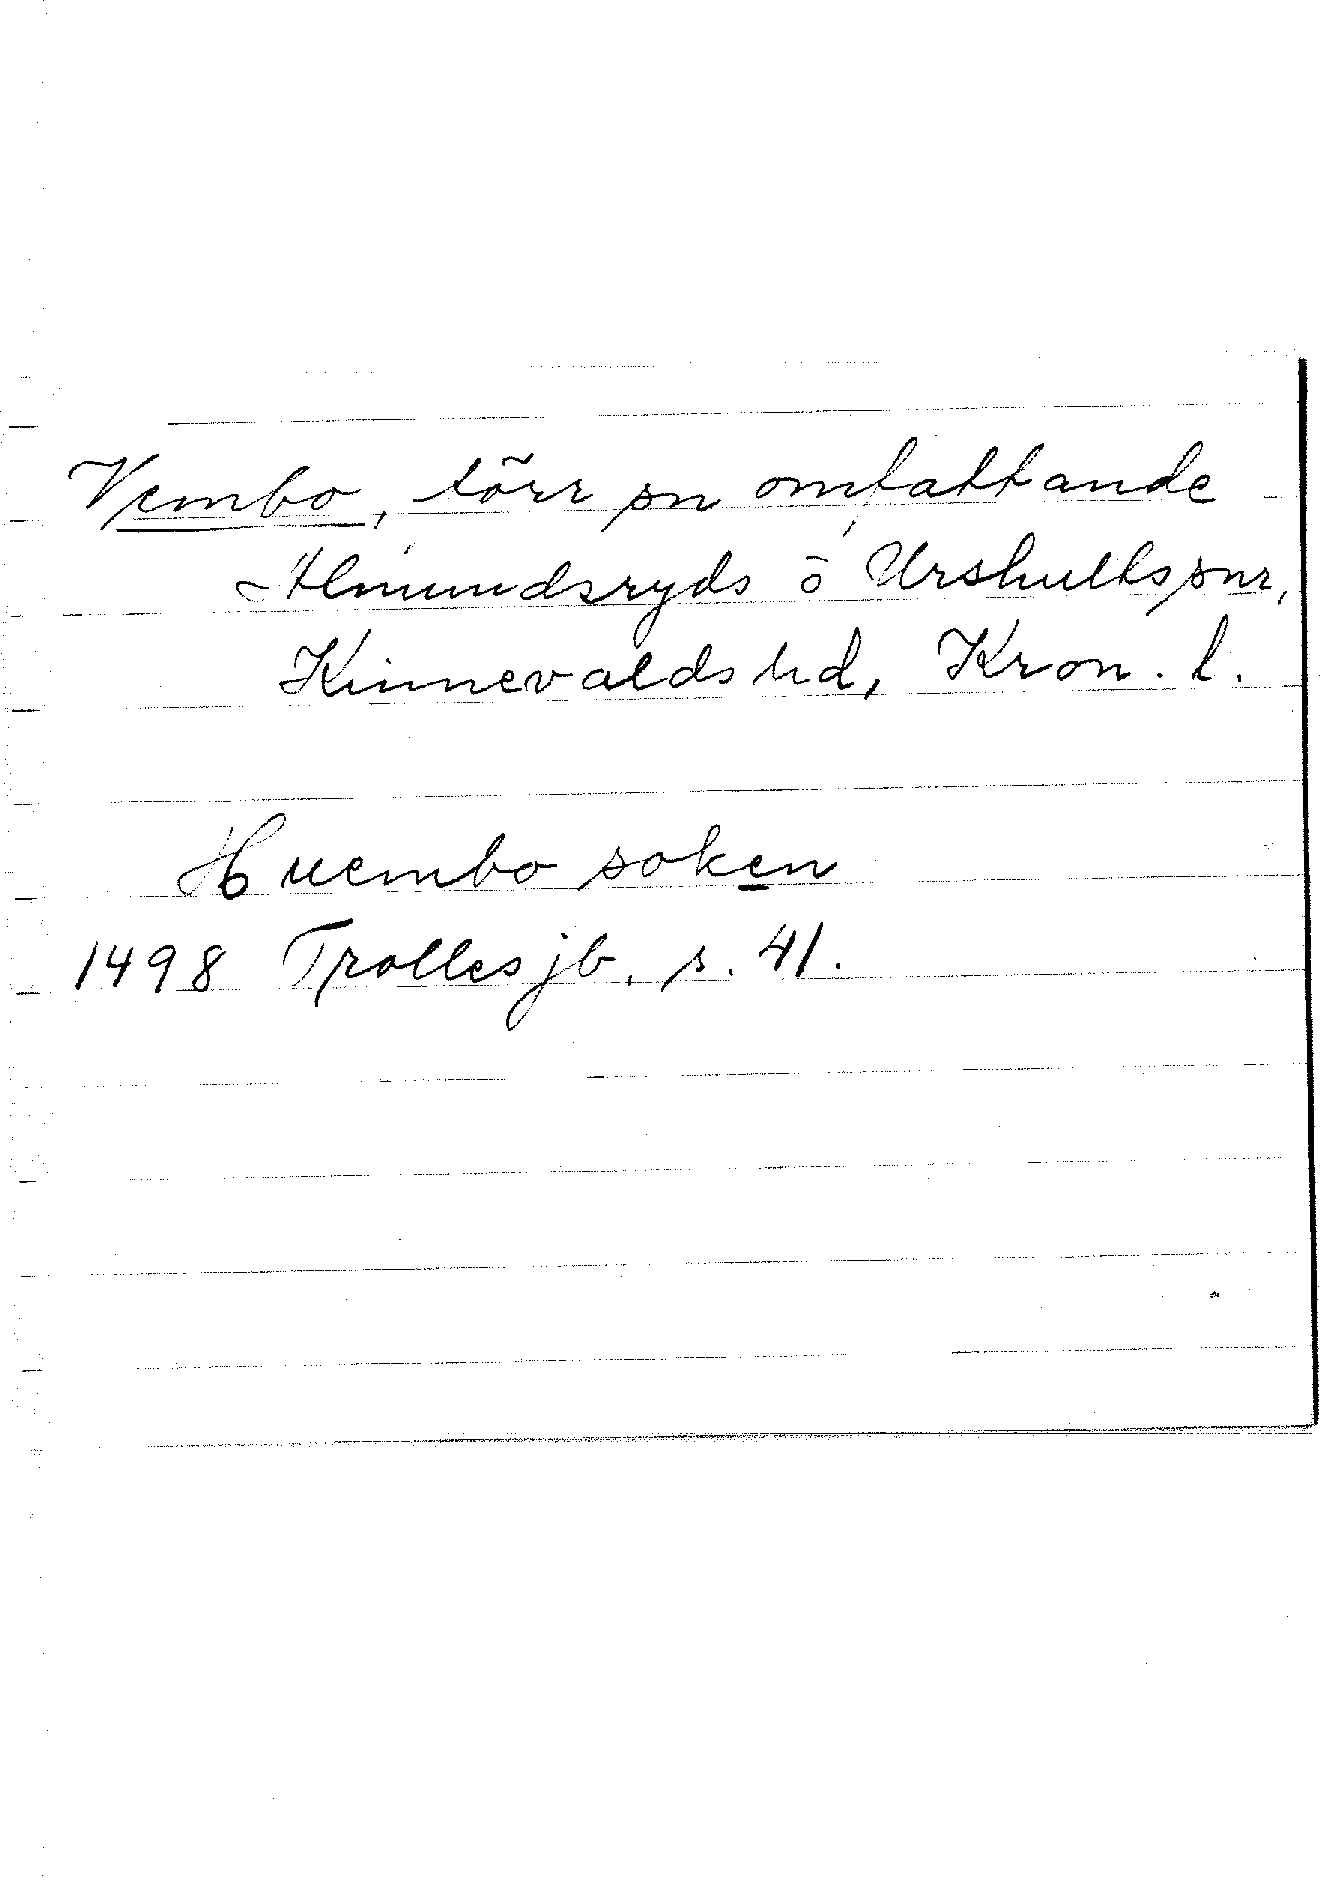 Vembo, förr sn omfattande
Almundsryds o Urshults snr,
Kinnevalds hd, Kron. l.
Huembo soken
1498 Trolles jb. s. 41.